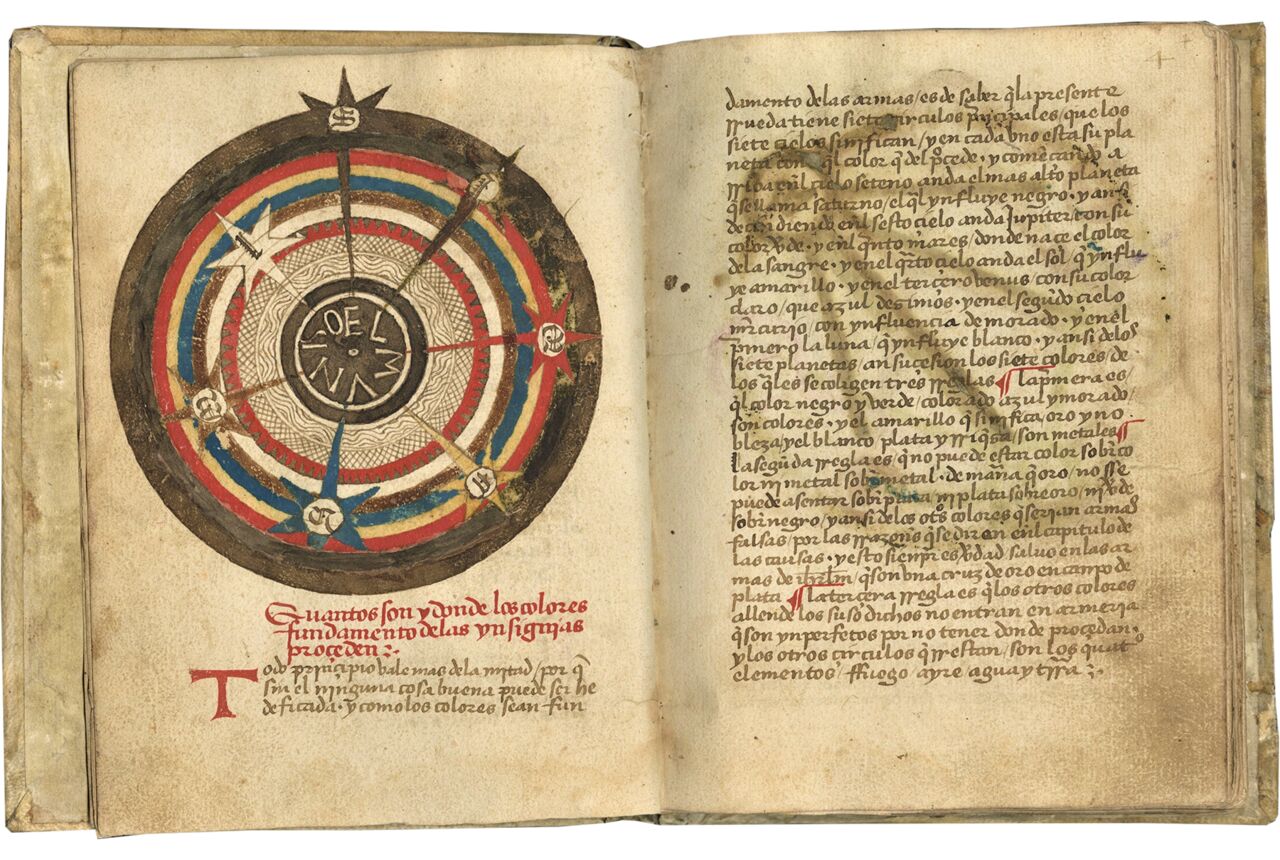 S
EL MUNDO
Quantos son y donde los colores
fundamento de las ynsignias
proçeden :~
Todo prinçipio vale mas dela mitad / por q̃
sin el ninguna cosa buena puede ser he
deficada · y como los colores sean fun
damento delas armas / es de saber q̃ la presente
rrueda tiene siete çirculos prinçipales / que los
siete çielos sinifican / y en cada vno esta su pla
neta con el color q̃ del proçede · y començando a
rriba enl çielo seteno anda el mas alto planeta
q̃ se llama saturno / el q̃l ynfluye negro · y ansi
deçindiendo enl sesto çielo anda Jupiter / con su
color vrde · y enl q̃nto mares / donde naçe el color
dela sangre · y en el q̃rto çielo anda el sol q̃ ynflu
ye amarillo · y en el terçero venus con su color
claro / que azul deçimos · y en el segũdo çielo
mrcurio / con ynfluençia de morado · y en el
pmero la luna / q̃ ynfluye blanco · y ansi delos
siete planetas / an suçesion los siete colores / de
los q̃les se coligen tres rreglas ¶ la pmera es /
q̃l color negro y verde / colorado azul y morado /
son colores · y el amarillo q̃ sinifica / oro y no
bleza / y el blanco plata y rriq̃sa / son metales ¶
la segũda rregla es / q̃ no puede estar color sobr̃ co
lor ni metal sobr̃ metal · de mañã q̃ oro / no se
puede asentar sobr̃ plata ni plata sobre oro / ni vrde
sobr̃ negro / y ansi delos otros colores q̃ serian armas
falsas / por las rrazones q̃ se diran enl capitulo de
las causas · y esto sienpre es vrdad salvo en las ar
mas de ihrlm / q̃ son vna cruz de oro en canpo de
plata ¶ la terçera rregla es q̃ los otros colores
allende los suso dichos no entran en armeria
q̃ son ynperfetos por no tener donde proçedan ·
y los otros çirculos q̃ rrestan / son los quatro
elementos / ffuego ayre agua y trra :~